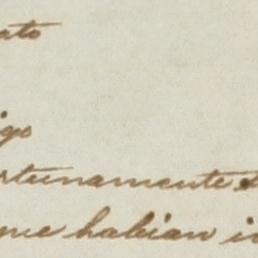 ato
igo
rtunamente
me habian i